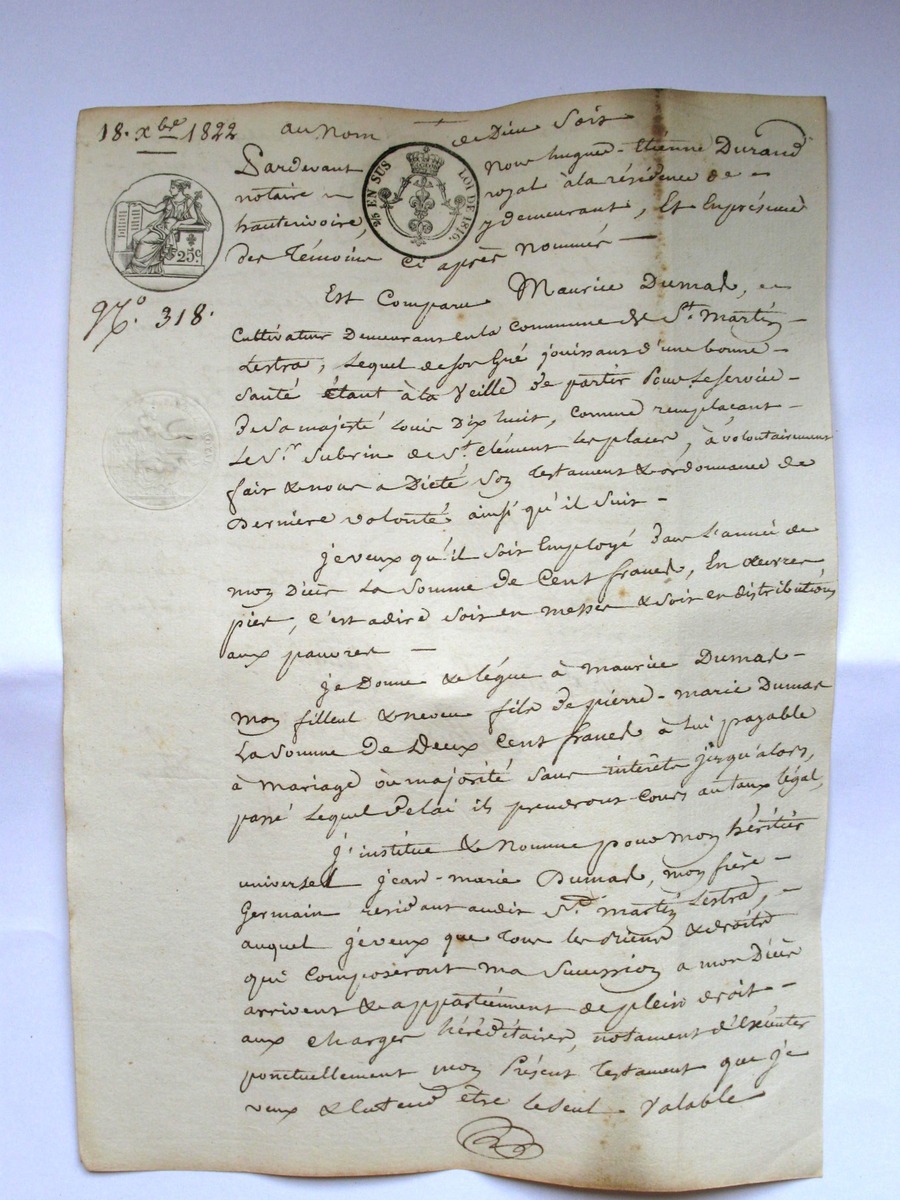 18. xbre 1822
au nom de Dieu Soit
Pardevant Nous hugues-Etienne Durand
notaire royal à la résidence de
hauterivoire, y demeurant, Et En présence
des Témoins Ci après nommés —
25 EN SUS
LOI DE 1816.
25c.
No. 318.
Est Comparu Maurice Dumas,
Cultivateur Demeurant en la Commune de St. Martin
Lestra, Lequel de son Gré jouissant d'une bonne
Santé étant à la Veille de partir Pour Le Service
De Sa majesté Louis Dix huit, comme remplaçant
Le Sr. Subrin de St. Clément les places, à volontairement
fait & nous a Dicté Son Testament & ordonnance de
Dernière volonté ainsi qu'il Suit -
je veux qu'il Soit Employé dans L'année de
mon Décès La Somme de Cent francs, En œuvres
pies, C'est adire Soit en messes & Soit en distributions
aux pauvres —
je Donne & légue à Maurice Dumas
Mon filleul & neveu fils de pierre-marie Dumas
La Somme de Deux Cent francs à Lui payable
à Mariage ou majorité Sans intérêts jusqu'alors,
passé Lequel Délai ils prendront Cours au taux légal,
J'institue & Nomme pour mon héritier
universel jean-marie Dumas, mon frère
Germain residant audit St. Martin Lestra,
auquel je veux que Tous les Biens & droits
qui Composeront ma Succession a mon Décès
arrivent & appartiennent de plein droit
aux Charges héréditaires, notament d'Exécuter
ponctuellement mon Présent Testament que je
veux & Entend être le Seul Valable